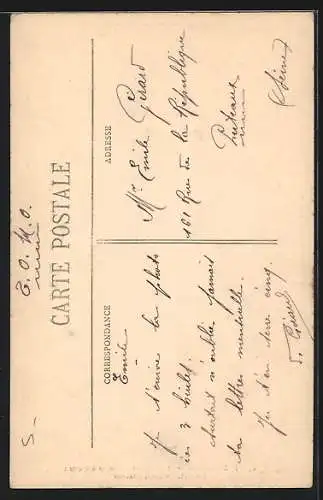 E. O. M. O.
CARTE POSTALE
CORRESPONDANCE
Emile
Je t'envoie la photo
ces 3
Surtout n'oublie jamais
ta lettre mensuelle.
Je t'en serre cinq.
Girard
ADRESSE
Mr Emile Girard
161 Rue de la République
Puteaux
(Seine)